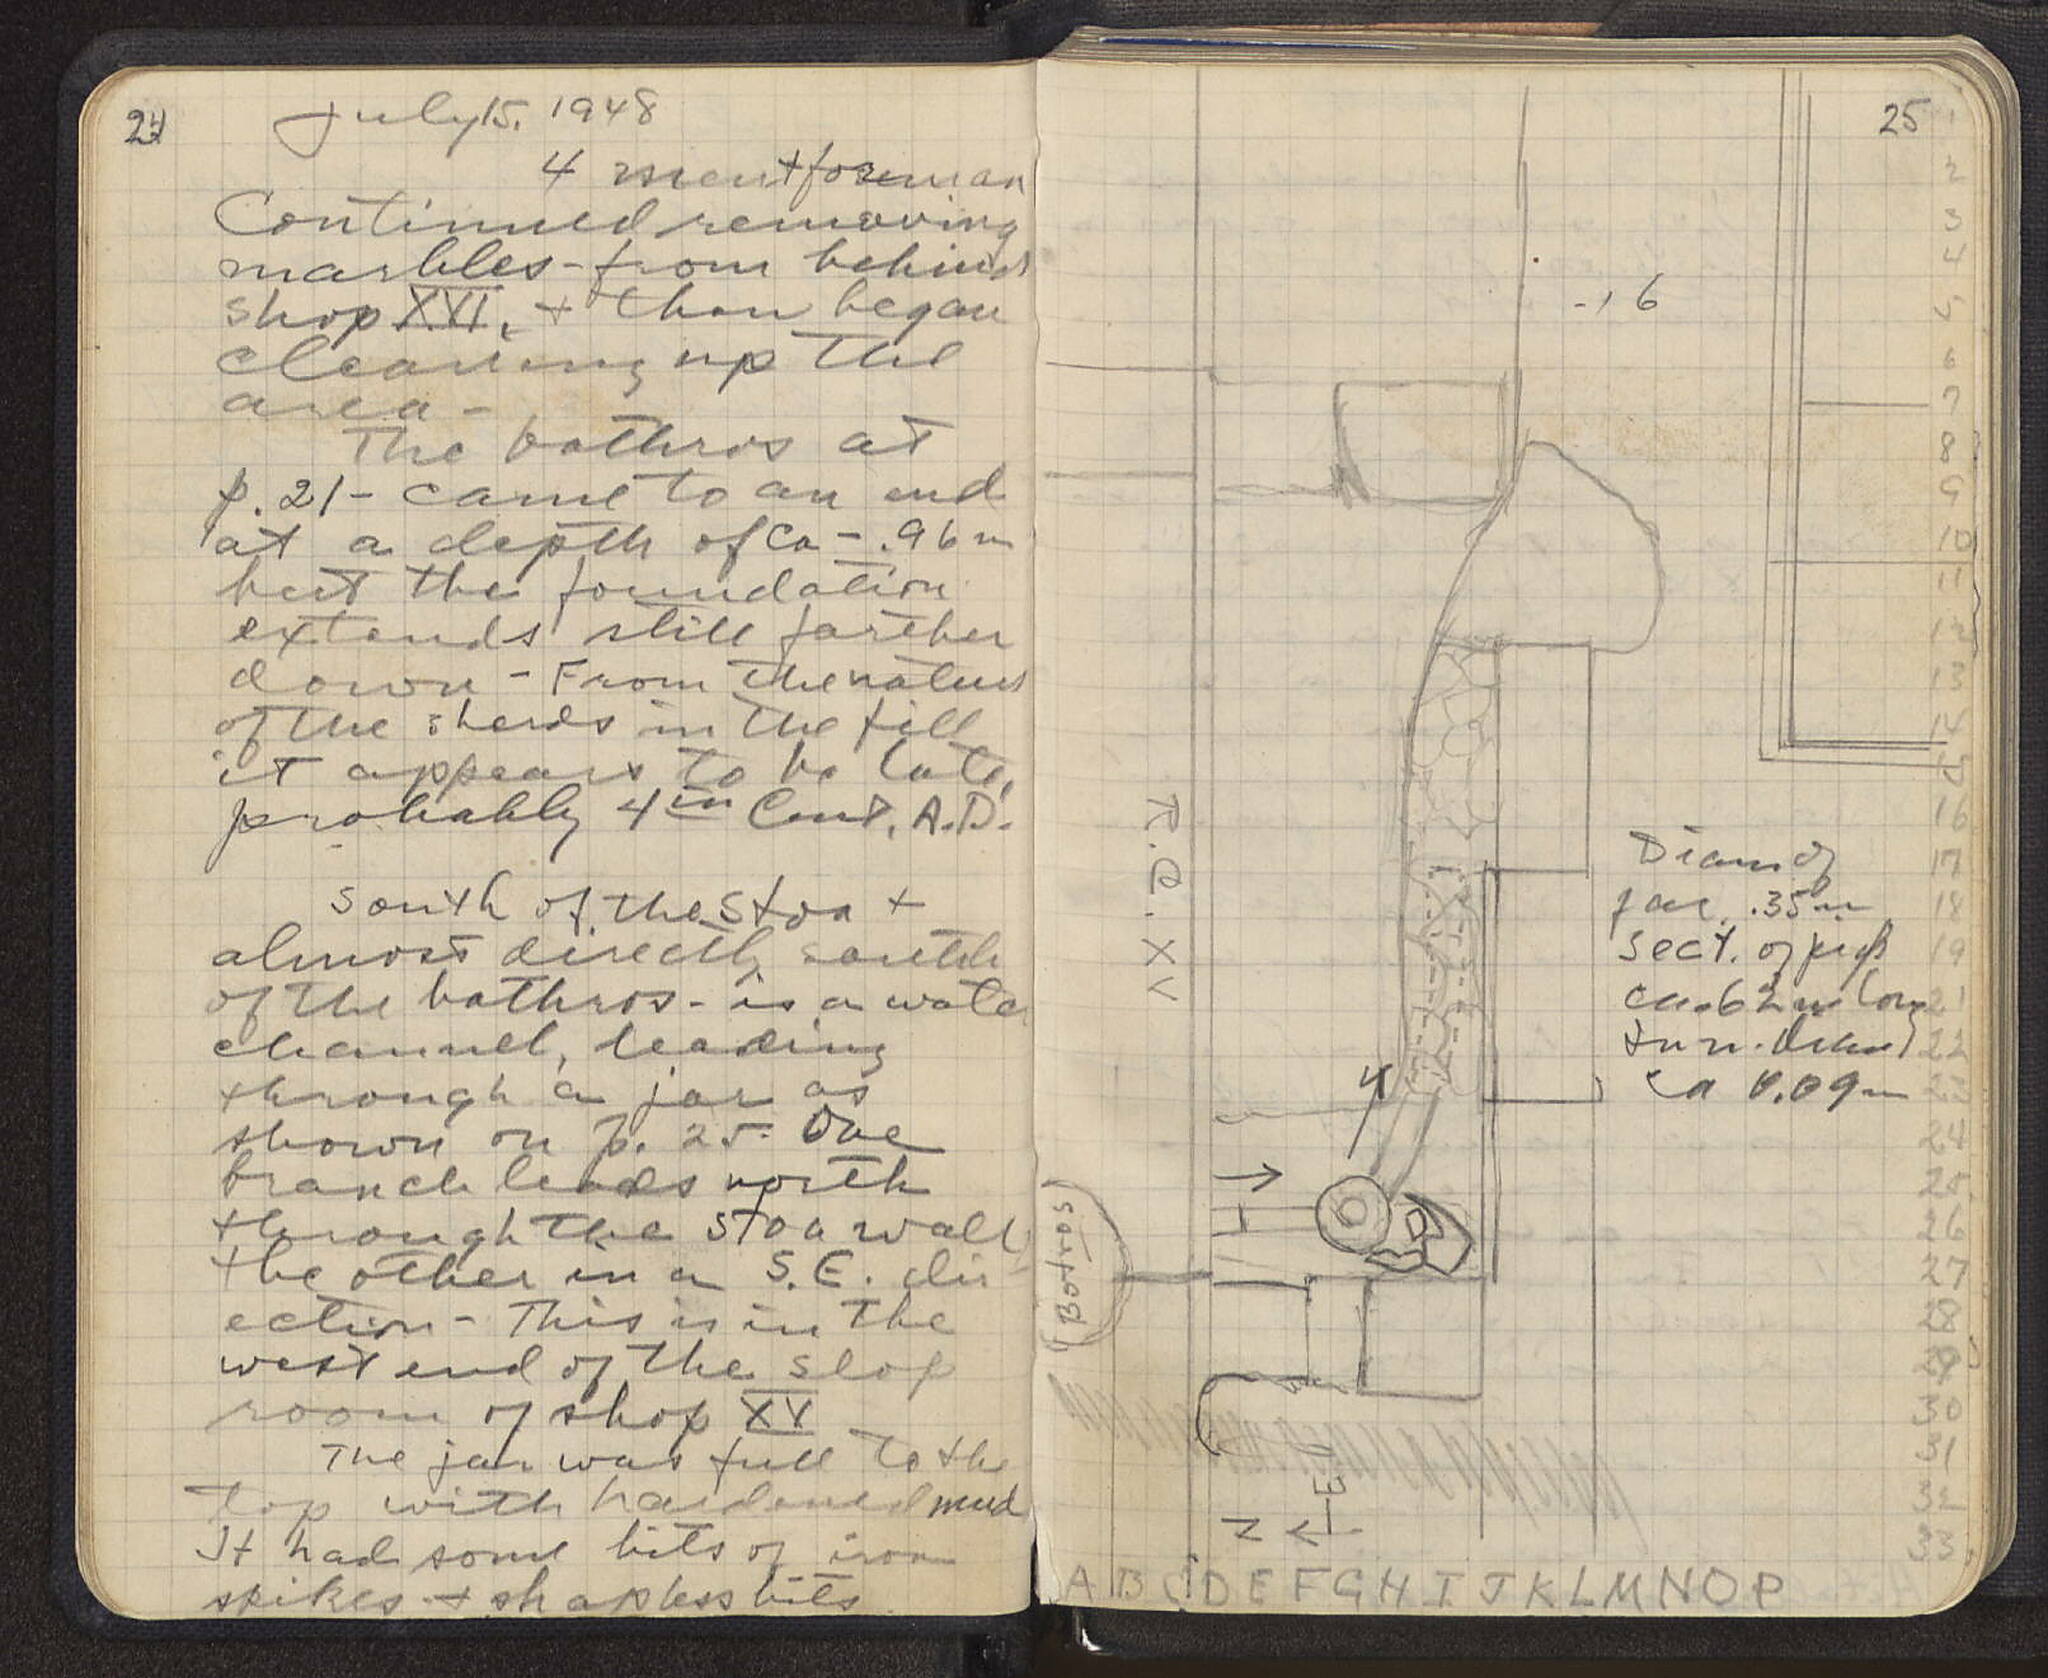 24
July 15, 1948
4 men + foreman
Continued removing
marbles - from behind
shop XVI, + then began
cleaning up the
area -
The bothros at
p. 21 - came to an end
at a depth of ca - .96 m
but the foundation
extends still farther
down - From the nature
of the sherds in the fill
it appears to be late,
probably 4th Cent. A.D.
South of the Stoa +
almost directly south
of the bothros - is a water
channel, leading
through a jar as
shown on p. 25. One
branch leads north
through the Stoa wall
the other in a S.E. dir-
ection - This is in the
west end of the
room of shop XV
The jar was full to the
top with hardened mud
It had some bits of iron
spikes + shapless bits
25
- , 6
R. G. XV
Diam of
jar .35 m
Sect. of pipe
ca .62 m long
+ in n. diam
ca 0.09 m
4
(Botros)
E
N
A B C D E F G H I J K L M N O P
1
2
3
4
5
6
7
8
9
10
11
12
13
14
15
16
17
18
19
21
22
23
24
25
26
27
28
29
30
31
32
33